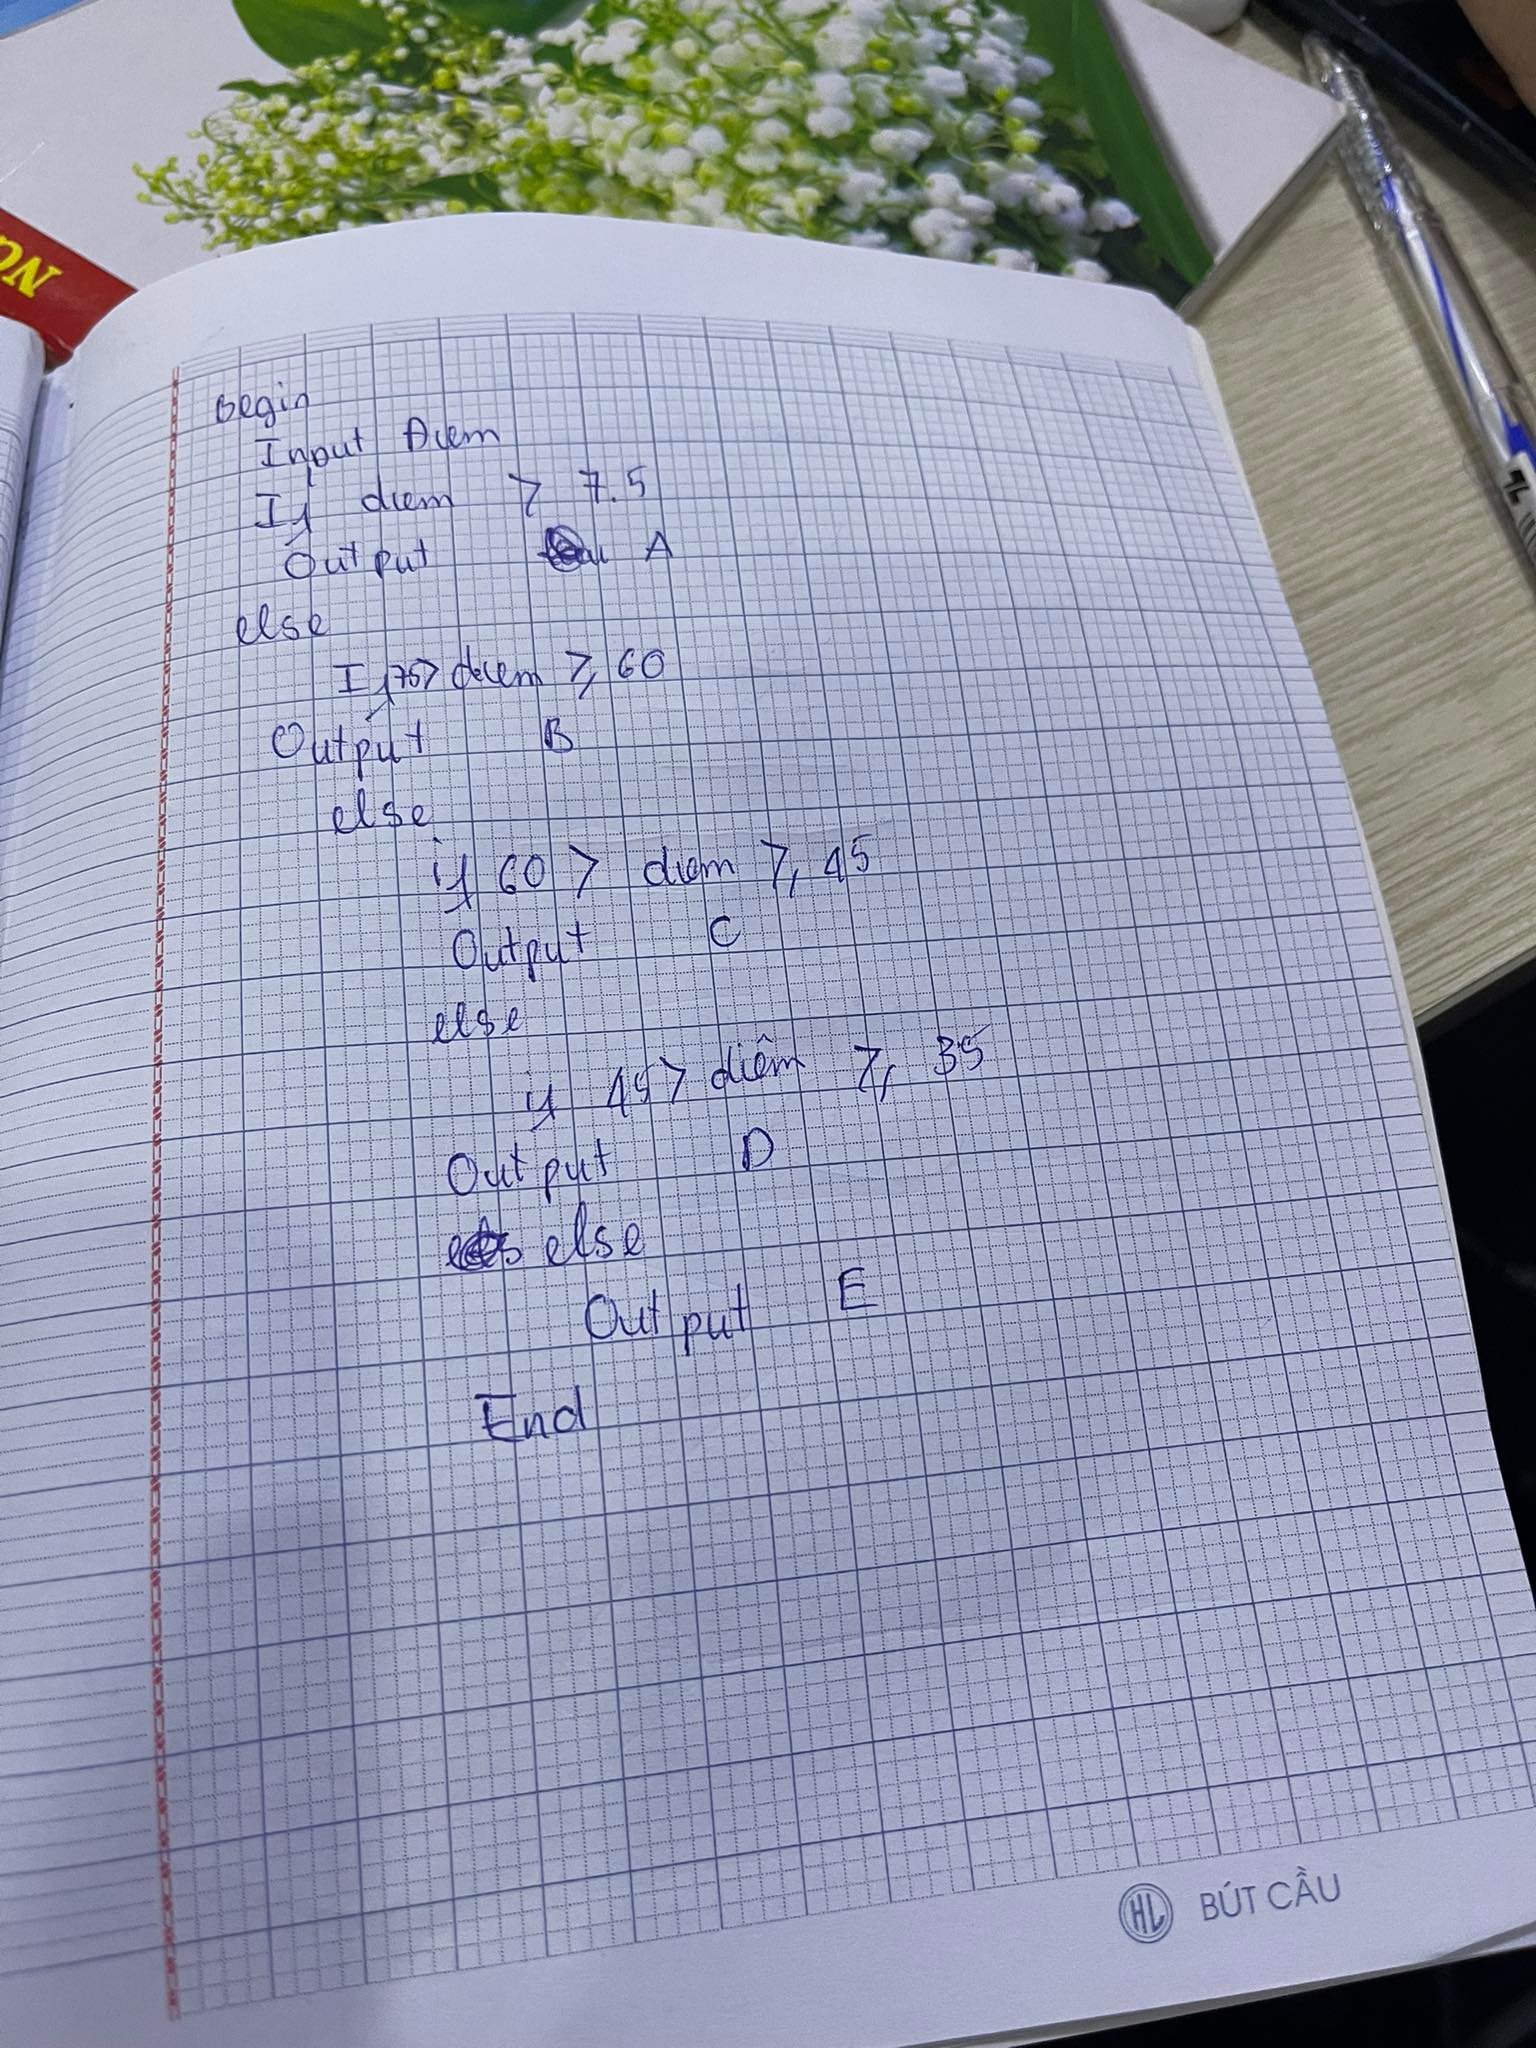 ON
begin
Input Điem
If diem > 7.5
Output A
else
If 75> diem ≥ 60
Output B
else
if 60 > diem ≥ 45
Output C
else
if 45 > diêm ≥ 35
Output D
else
Output E
End
HL BÚT CẦU